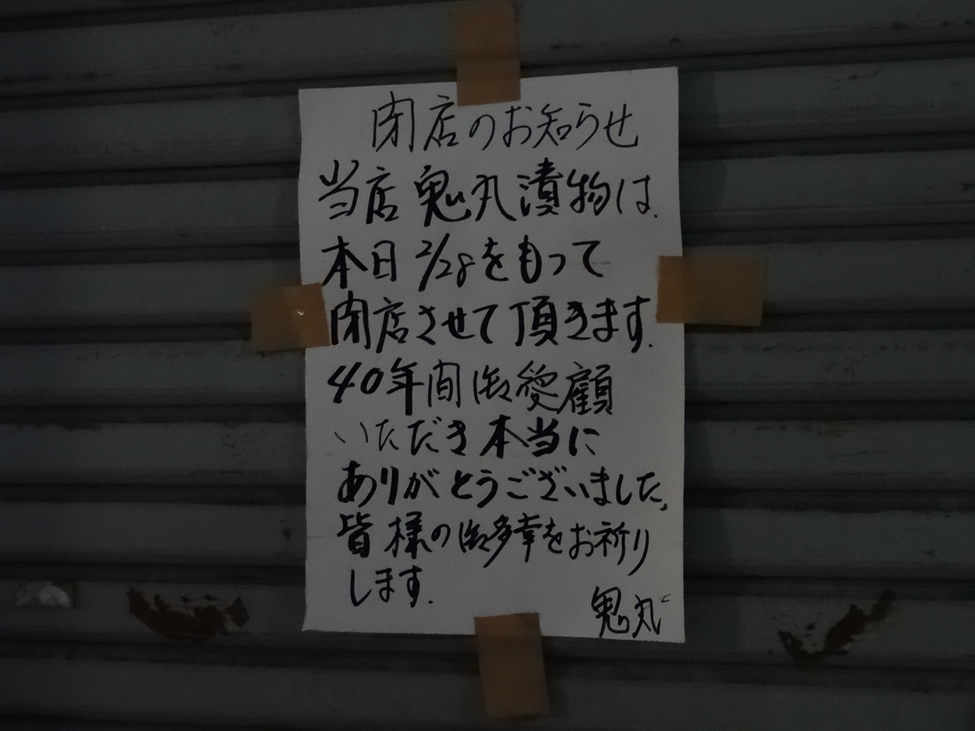 閉店のお知らせ
当店鬼丸漬物は、
本日2/28をもって
閉店させて頂きます。
40年間御愛顧
いただき本当に
ありがとうございました。
皆様の御多幸をお祈り
します。
鬼丸